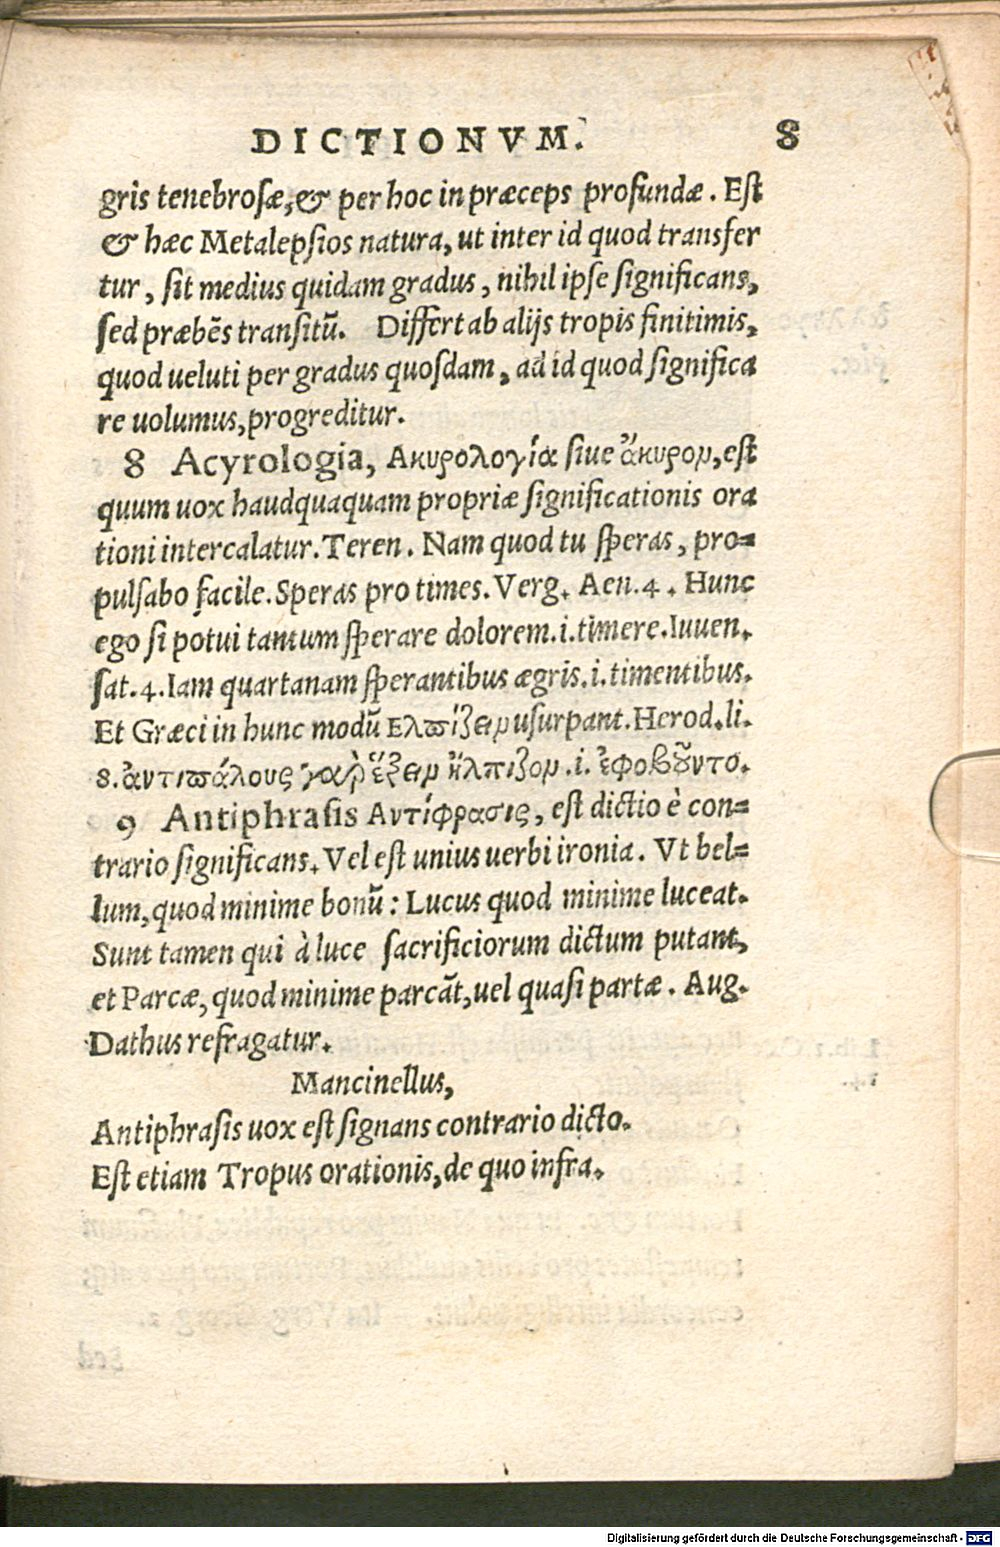 DICTIONVM. 8
gris tenebrosæ,& per hoc in præceps profundæ. Est
& hæc Metalepsios natura, ut inter id quod transfer
tur, sit medius quidam gradus, nihil ipse significans,
sed præbẽs transitũ. Differt ab alijs tropis finitimis,
quod ueluti per gradus quosdam, ad id quod significa
re uolumus, progreditur.
8 Acyrologia, Ακυρολογία siue ἄκυρον, est
quum uox haudquaquam propriæ significationis ora
tioni intercalatur. Teren. Nam quod tu speras, pro=
pulsabo facile. Speras pro times. Verg. Aen. 4. Hunc
ego si potui tantum sperare dolorem.i.timere. Iuuen.
sat. 4. Iam quartanam sperantibus ægris.i.timentibus.
Et Græci in hunc modũ Ελπίζειν usurpant. Herod. li.
8. ἀντιπάλους γὰρ ἕξειν ἤλπιζον .i. ἐφοβοῦντο.
9 Antiphrasis Αντίφρασις, est dictio è con=
trario significans. Vel est unius uerbi ironia. Vt bel=
lum, quod minime bonũ: Lucus quod minime luceat.
Sunt tamen qui à luce sacrificiorum dictum putant,
et Parcæ, quod minime parcãt, uel quasi partæ. Aug.
Dathus refragatur.
Mancinellus,
Antiphrasis uox est signans contrario dicto.
Est etiam Tropus orationis, de quo infra.
Digitalisierung gefördert durch die Deutsche Forschungsgemeinschaft - DFG